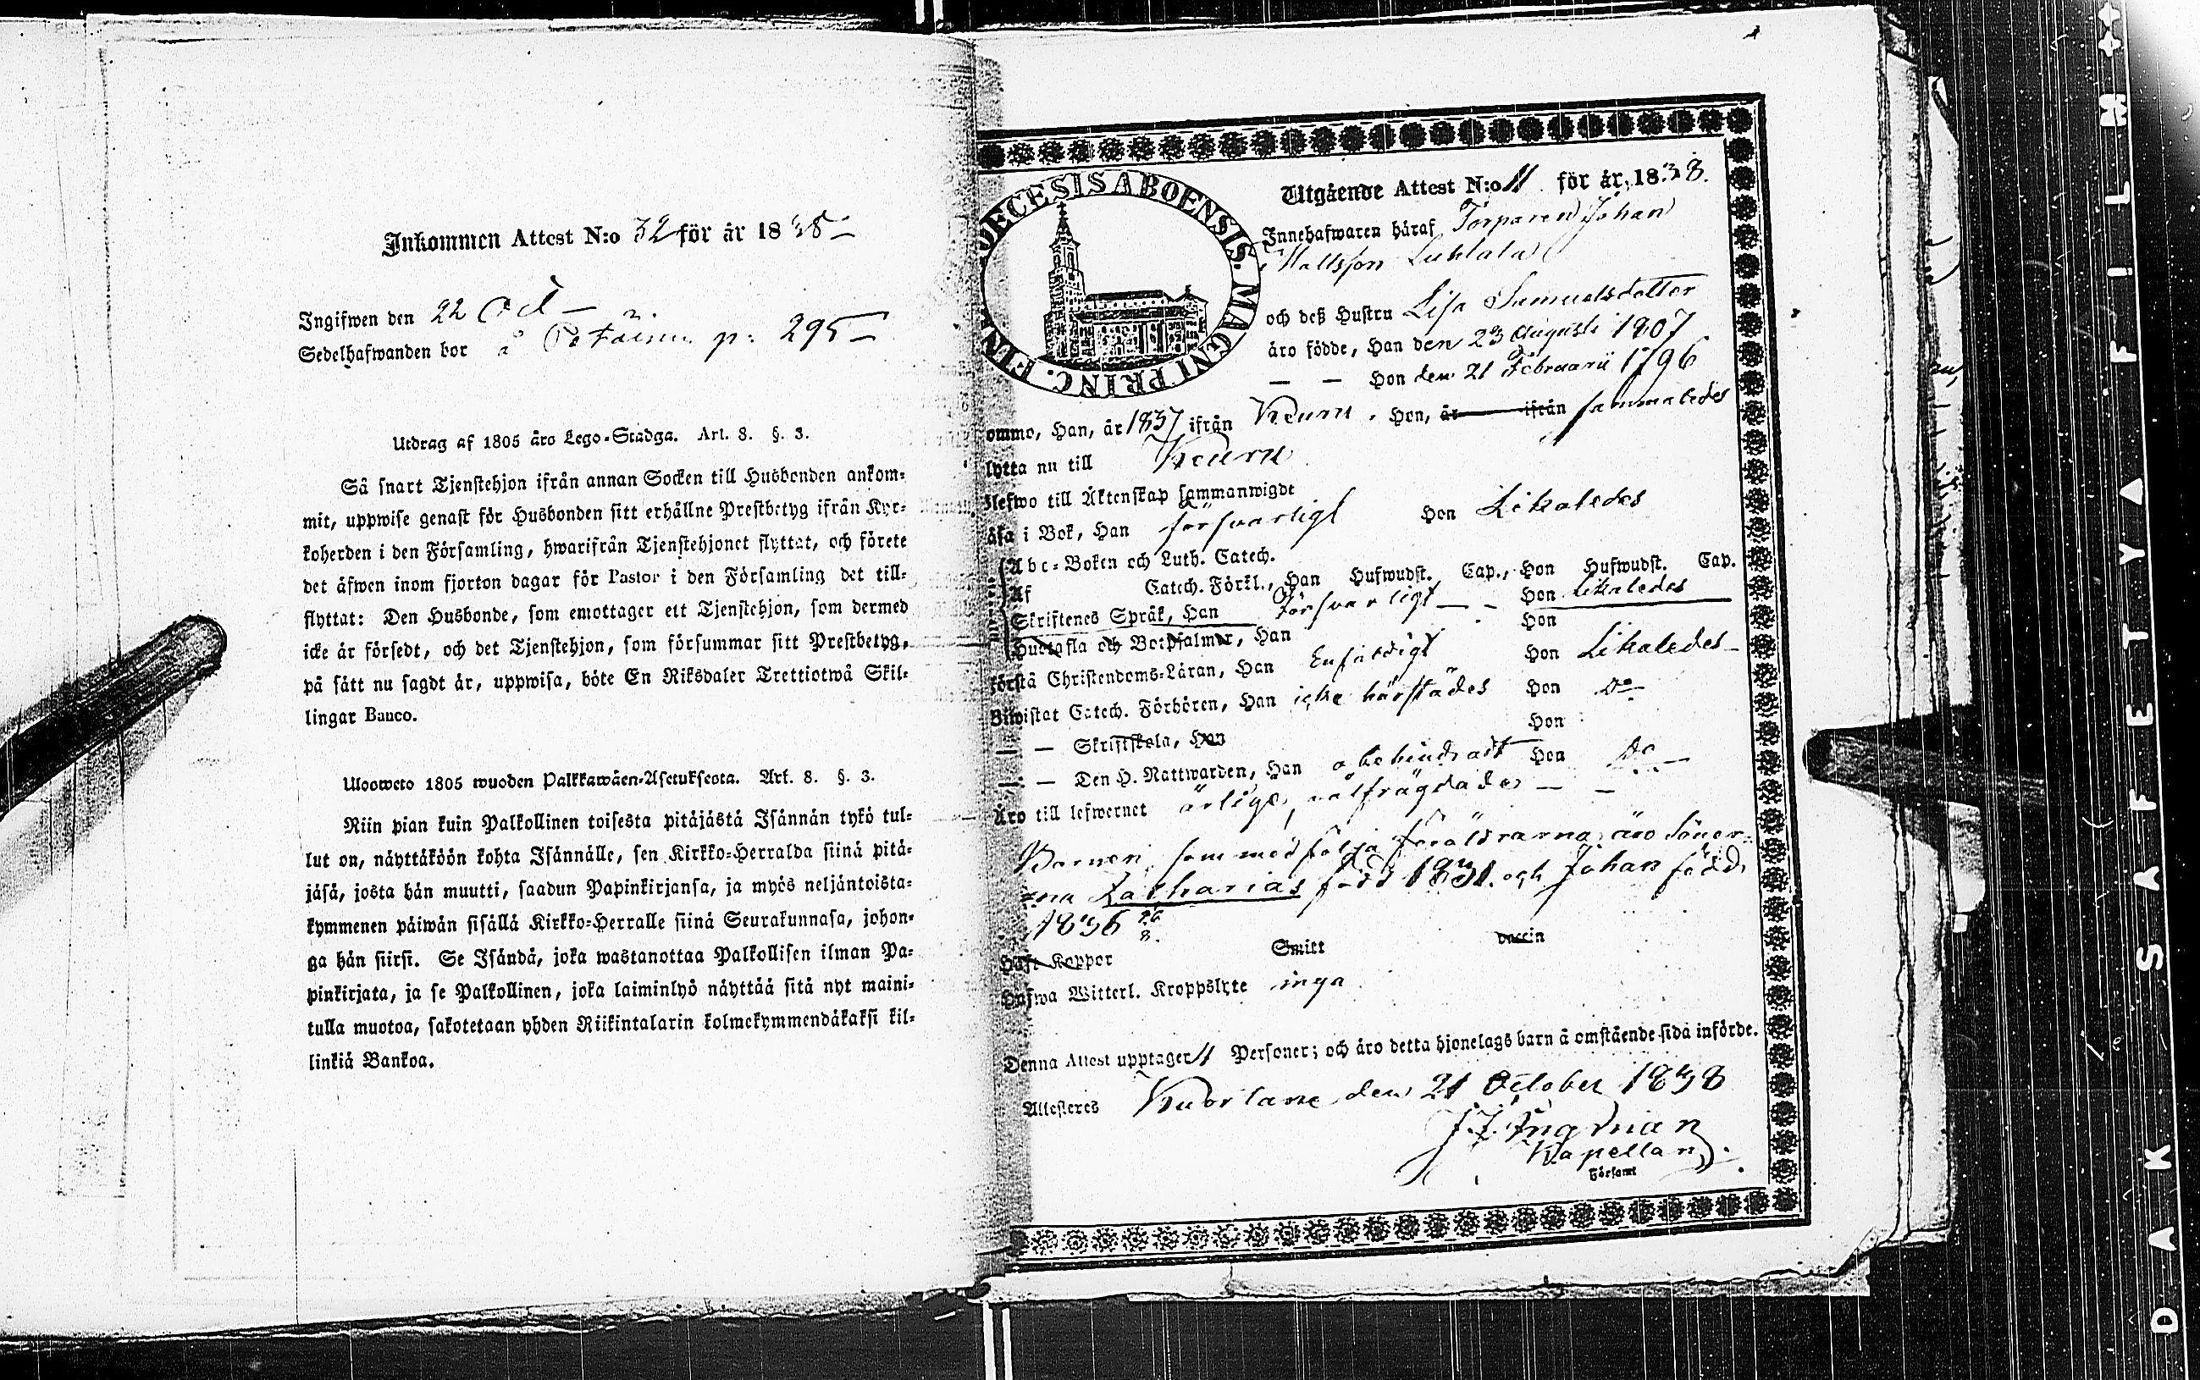 Inkommen Attest N:o 32 för år 1838
Ingifwen den 22 Oct
Sedelhafwanden bor å p: 295
Utdrag af 1805 åro Lego-Stadga. Art. 8. §. 3.
Så snart Tjenstehjon ifrån annan Socken till Husbonden ankom-
mit, uppwise genast för Husbonden sitt erhållne Prestbetyg ifrån Kyr-
koherden i den Församling, hwarifrån Tjenstehjonet flyttat, och förete
det åfwen inom fjorton dagar för Pastor i den Församling det till-
flyttat: Den Husbonde, som emottager ett Tjenstehjon, som dermed
icke är försedt, och det Tjenstehjon, som försummar sitt Prestbetyg,
på sått nu sagdt är, uppwisa, böte En Riksdaler Trettiotwå Skil-
lingar Banco.
Uloosweto 1805 wuoden Palkkawäen-Asetuksesta. Art. 8. §. 3.
Niin pian kuin Palkollinen toisesta pitäjästä Isännän tykö tul-
lut on, näyttäköön kohta Isännälle, sen Kirkko-Herralda siinä pitä-
jäsä, josta hän muutti, saadun Papinkirjansa, ja myös neljäntoista-
kymmenen päiwän sisällä Kirkko-Herralle siinä Seurakunnasa, johon-
ga hän siirsi. Se Isändä, joka wastanottaa Palkollisen ilman Pa-
pinkirjata, ja se Palkollinen, joka laiminlyö näyttää sitä nyt maini-
tulla muotoa, sakotetaan yhden Riikintalarin kolmekymmendäkaksi kil-
linkiä Bankoa.
DIECESIS ABOENSIS. MAGNI PRINC. FIN
Utgående Attest N:o 11 för år 1838.
Innehafwaren häraf Torparen Johan
Mattsson Luhtala
och deß Hustru Lisa Samuelsdotter
äro födde, Han den 23 Augusti 1807
— — Hon den 21 Februarii 1796
ommo, Han, år 1837 ifrån Keuru. Hon, år ifrån sammaledes
lytta nu till Keuru
lefwo till Äktenskap sammanwigde
äsa i Bok, Han försvarligt Hon Likaledes
Abc-Boken och Luth. Catech.
Af Catech. Förkl., Han Hufwudst. Cap., Hon Hufwudst. Cap.
Skriftenes Språk, Han Försvarligt — - Hon Likaledes
Hustafla och Botpsalmer, Han Hon
förstå Christendoms-Läran, Han Enfaldigt Hon Likaledes
Biwistat Catech. Förhören, Han icke härstädes Hon Do
— — Skriftskola, Han Hon
— — Den H. Nattwarden, Han obehindradt Hon Do
Äro till lefwernet ärlige, välfrägdade — —
Barnen, som medfölja föräldrarna äro Söner-
na Zacharias född 1831. och Johan född
1836 26/8.
Haft Koppor Smitt vaccin
Hafwa Witterl. Kroppslyte inga
Denna Attest upptager 4 Personer; och äro detta hjonelags barn å omstående sida införde.
Attesteres Kuortane den 21 October 1838
J. J. Ingman
Kapellan
Församl
DAK SAFETY A FILM